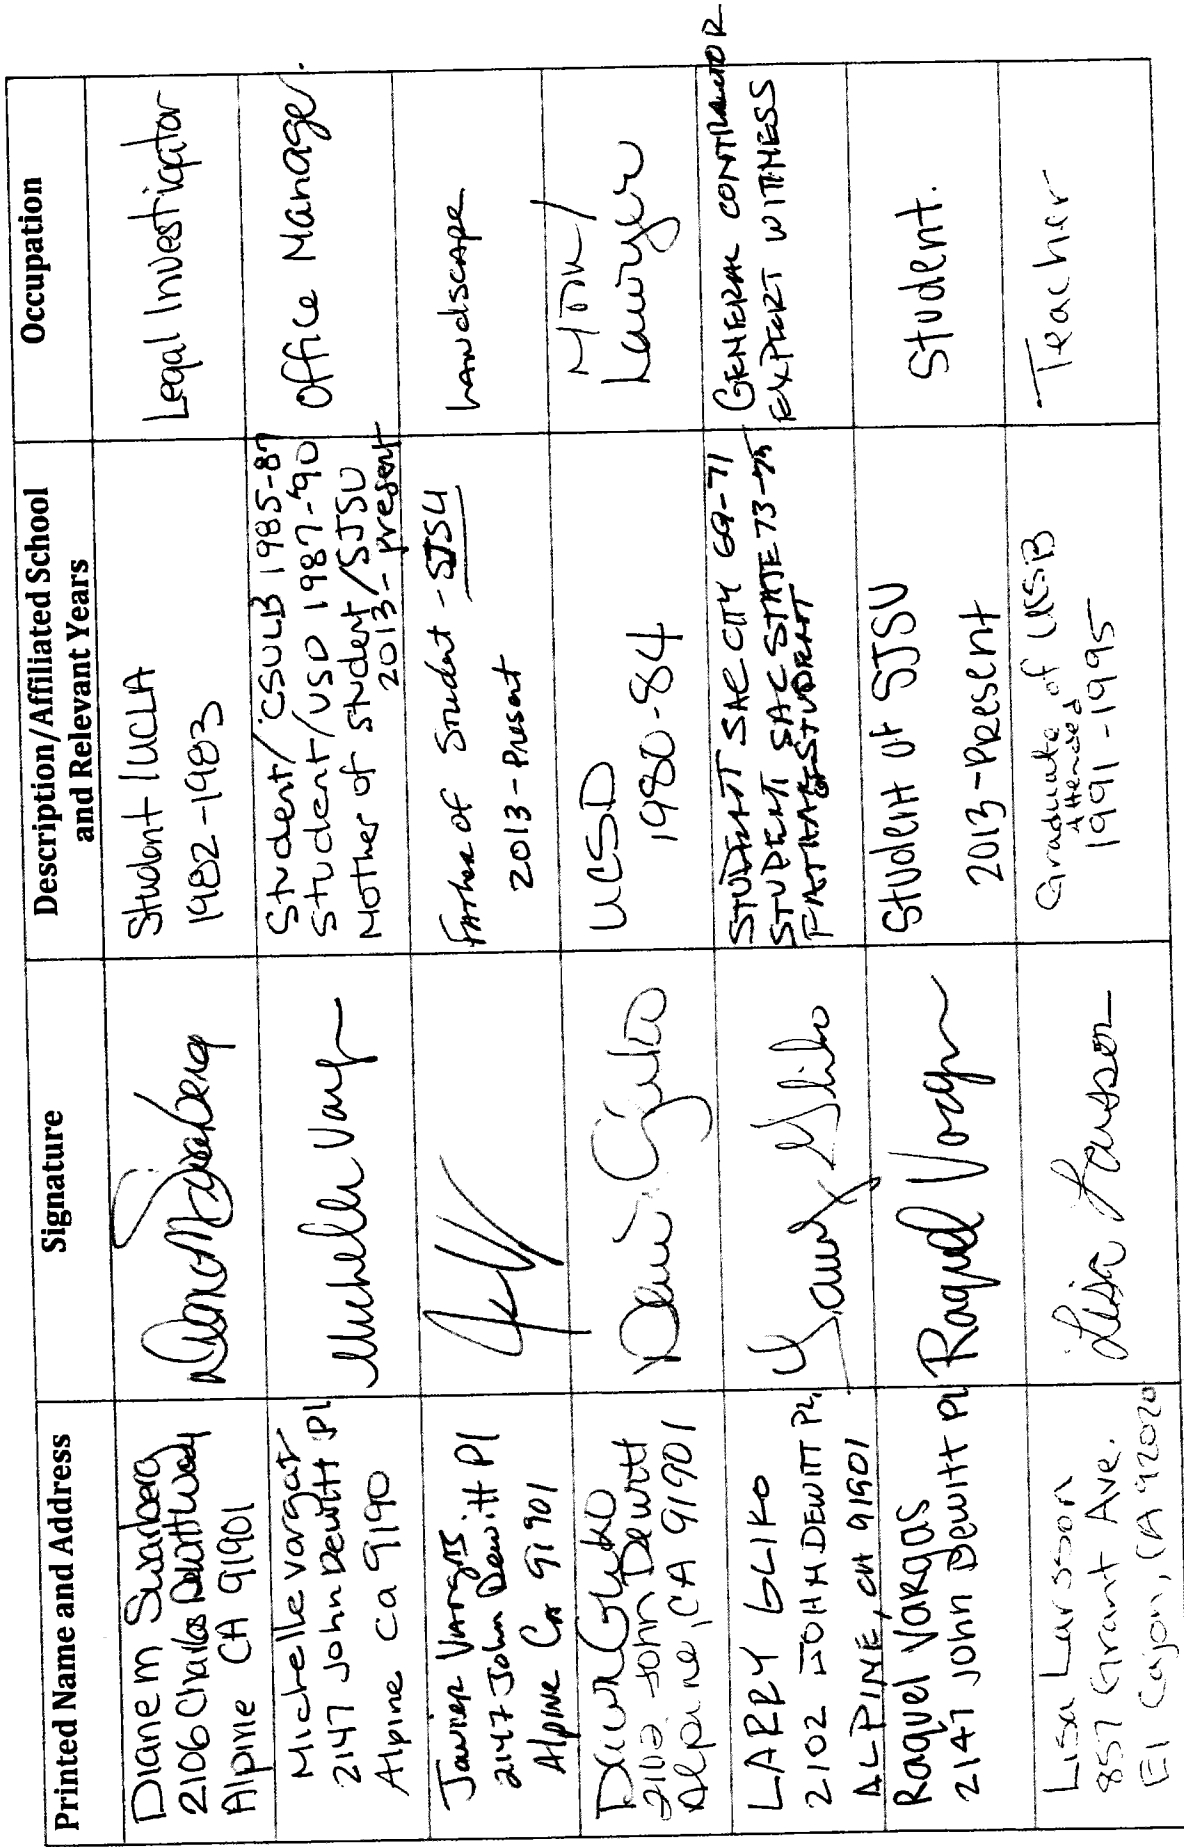 Printed Name and Address
Signature
Description/Affiliated School
and Relevant Years
Occupation
Diane M Swarberg
2106 Charles Way
Alpine CA 91901
Student UCLA
1982-1983
Legal Investigator
Michelle Vargas
2147 John Dewitt Pl
Alpine Ca 9190
Michelle Varg
Student/CSULB 1985-87
Student/USD 1987-'90
Mother of student/SJSU
2013-present
Office Manager.
Javier Vargas
2147 John Dewitt Pl
Alpine Ca 91901
Father of Student - SJSU
2013-Present
Landscape
Gliko
2102 John Dewitt
Alpine, CA 91901
UCSD
1980-84
Mom/
Lawyer
LARRY GLIKO
2102 JOHN DEWITT PL,
ALPINE, CA 91901
Larry Gliko
STUDENT SAC CITY 69-71
STUDENT SAC STATE 73-75
FATHER OF STUDENT
GENERAL CONTRACTOR
EXPERT WITNESS
Raquel Vargas
2147 John Dewitt Pl
Raquel Vargas
Student of SJSU
2013-Present
Student.
Lisa Larsson
857 Grant Ave.
El Cajon, CA 92020
Lisa Larsson
Graduate of USB
Attended
1991-1995
Teacher